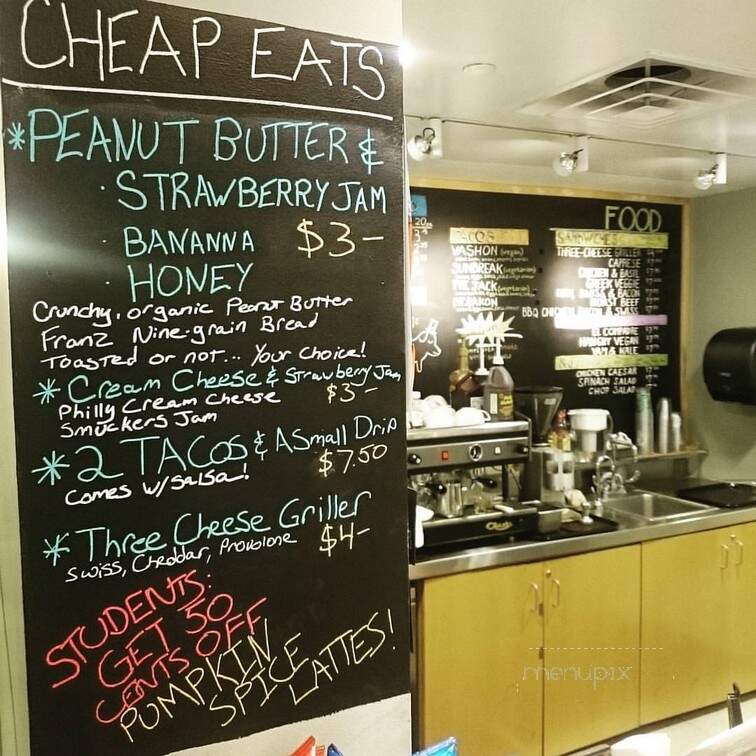 CHEAP EATS
*PEANUT BUTTER &
· STRAWBERRY JAM
· BANANNA $3-
· HONEY
Crunchy, organic Peanut Butter
Franz Nine-grain Bread
Toasted or not... Your Choice!
* Cream Cheese & Strawberry Jam
Philly Cream Cheese $3-
Smuckers Jam
* 2 TACOS & A Small Drip
Comes w/ Salsa! $7.50
* Three Cheese Griller
Swiss, Cheddar, Provolone $4-
STUDENTS:
GET 50
CENTS OFF
PUMPKIN
SPICE
LATTES!
FOOD
TACOS
VASHON (vegan)
SUNBREAK (vegetarian)
SANDWICHES
THREE-CHEESE GRILLER
CAPRESE
CHICKEN & BASIL
GREEK VEGGIE
ROAST BEEF
HUNGRY VEGAN
YAM & KALE
CHICKEN CAESAR
SPINACH SALAD
CHOP SALAD
menupix